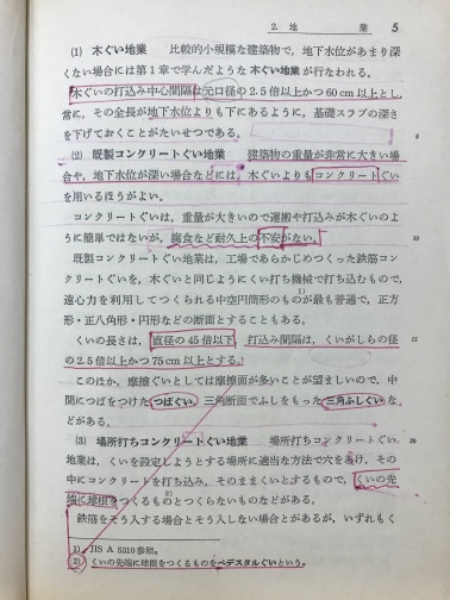 2. 地業 5
(1) 木ぐい地業 比較的小規模な建築物で，地下水位があまり深
くない場合には第1章で学んだような木ぐい地業が行なわれる。
木ぐいの打込み中心間隔は元口径の2.5倍以上かつ60cm以上とし，
常に，その全長が地下水位よりも下にあるように，基礎スラブの深さ
を下げておくことがたいせつである。 5
(2) 既製コンクリートぐい地業 建築物の重量が非常に大きい場
合や，地下水位が深い場合などには，木ぐいよりもコンクリートぐい
を用いるほうがよい。
コンクリートぐいは，重量が大きいので運搬や打込みが木ぐいのよ
うに簡単ではないが，腐食など耐久上の不安がない。 10
既製コンクリートぐい地業は，工場であらかじめつくった鉄筋コン
クリートぐいを，木ぐいと同じようにくい打ち機械で打ち込むもので，
遠心力を利用してつくられる中空円筒形のもの1)が最も普通で，正方
形・正八角形・円形などの断面とすることもある。
くいの長さは，直径の45倍以下，打込み間隔は，くいがしらの径 15
の2.5倍以上かつ75cm以上とする。
このほか，摩擦ぐいとしては摩擦面が多いことが望ましいので，中
間につばをつけたつばぐい，三角断面でふしをもった三角ふしぐいな
どがある。
(3) 場所打ちコンクリートぐい地業 場所打ちコンクリートぐい 20
地業は，くいを設定しようとする場所に適当な方法で穴をあけ，その
中にコンクリートを打ち込み，そのままくいとするもので，くいの先
端に球根をつくるもの2)とつくらないものなどがある。
鉄筋をそう入する場合とそう入しない場合とがあるが，いずれもく
1) JIS A 5310参照。
2) くいの先端に球根をつくるものをペデスタルぐいという。